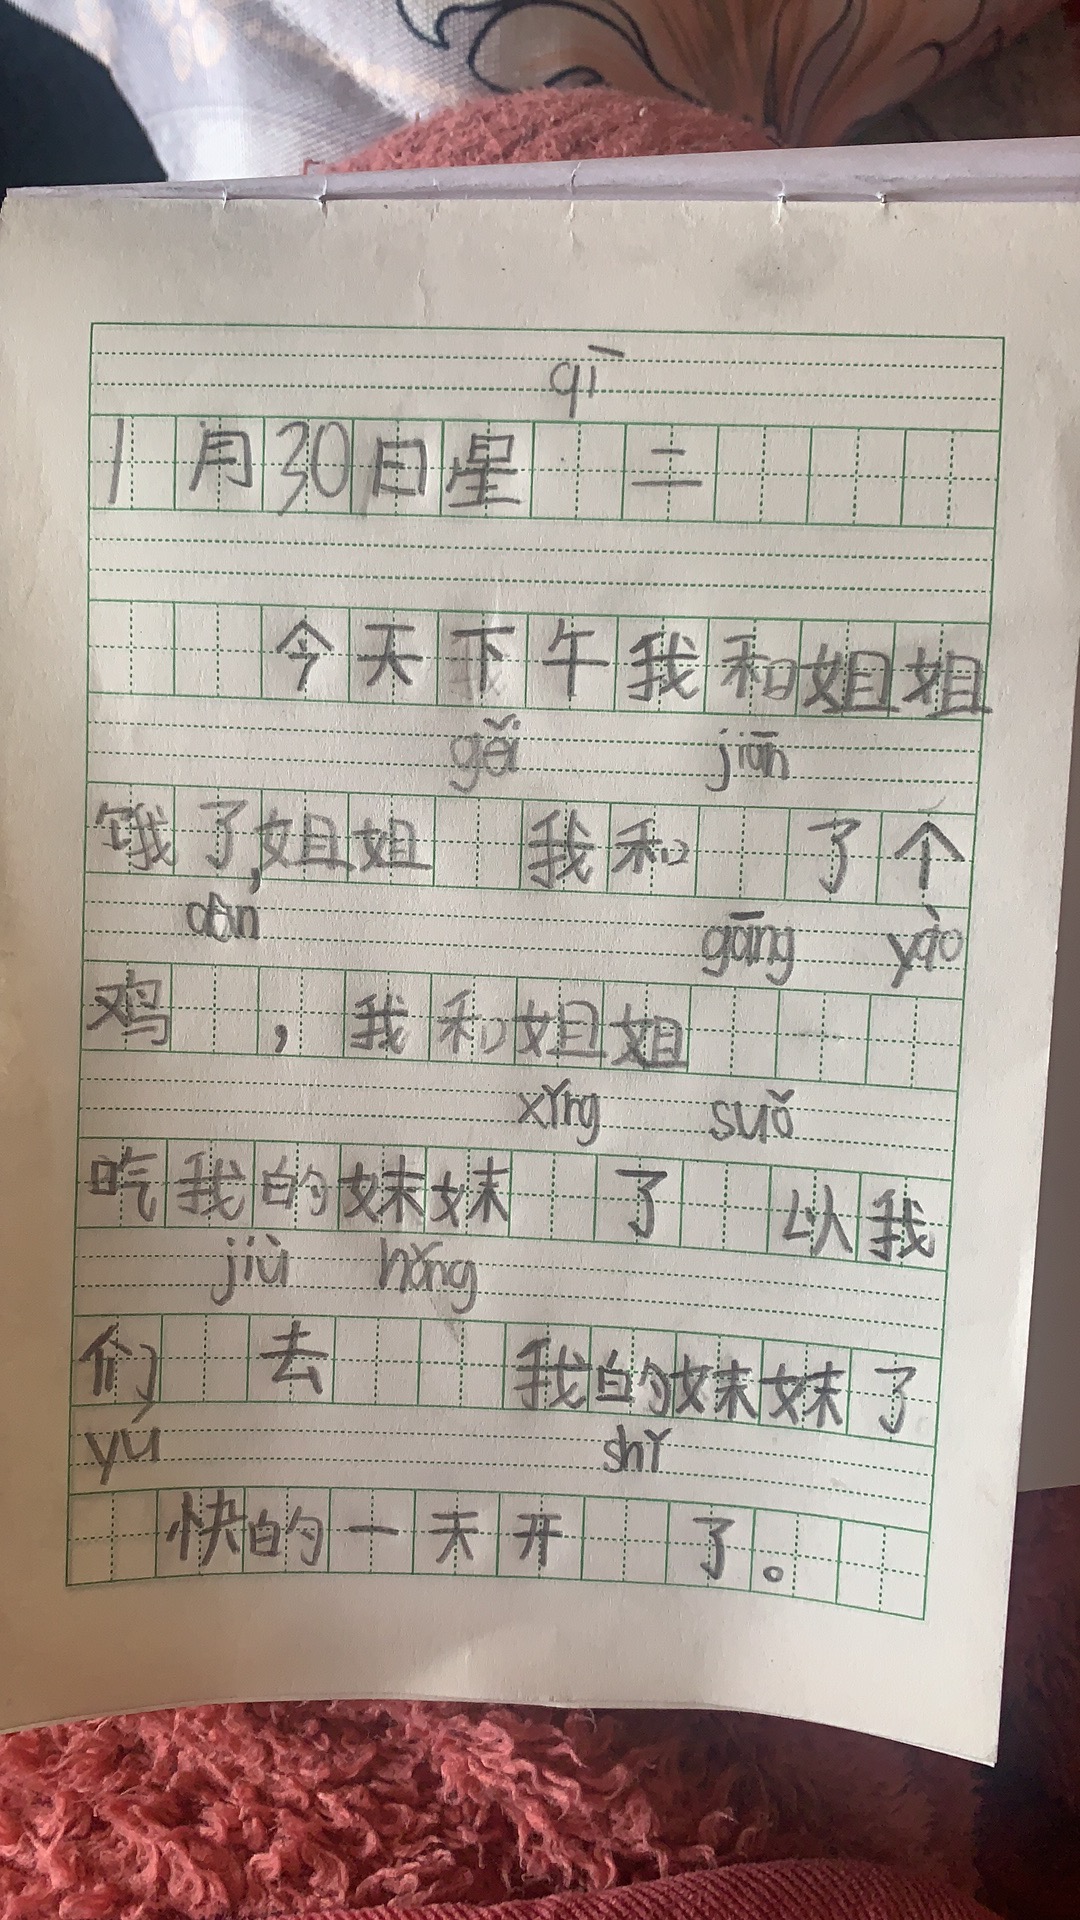 qī
1月30日星 二
今天下午我和姐姐
gěi jiān
饿了,姐姐 我和 了个
dàn gāng yào
鸡 ,我和姐姐
xǐng suǒ
吃我的妹妹 了 以我
jiù hǒng
们 去 我的妹妹了
yú shǐ
快的一天开 了。